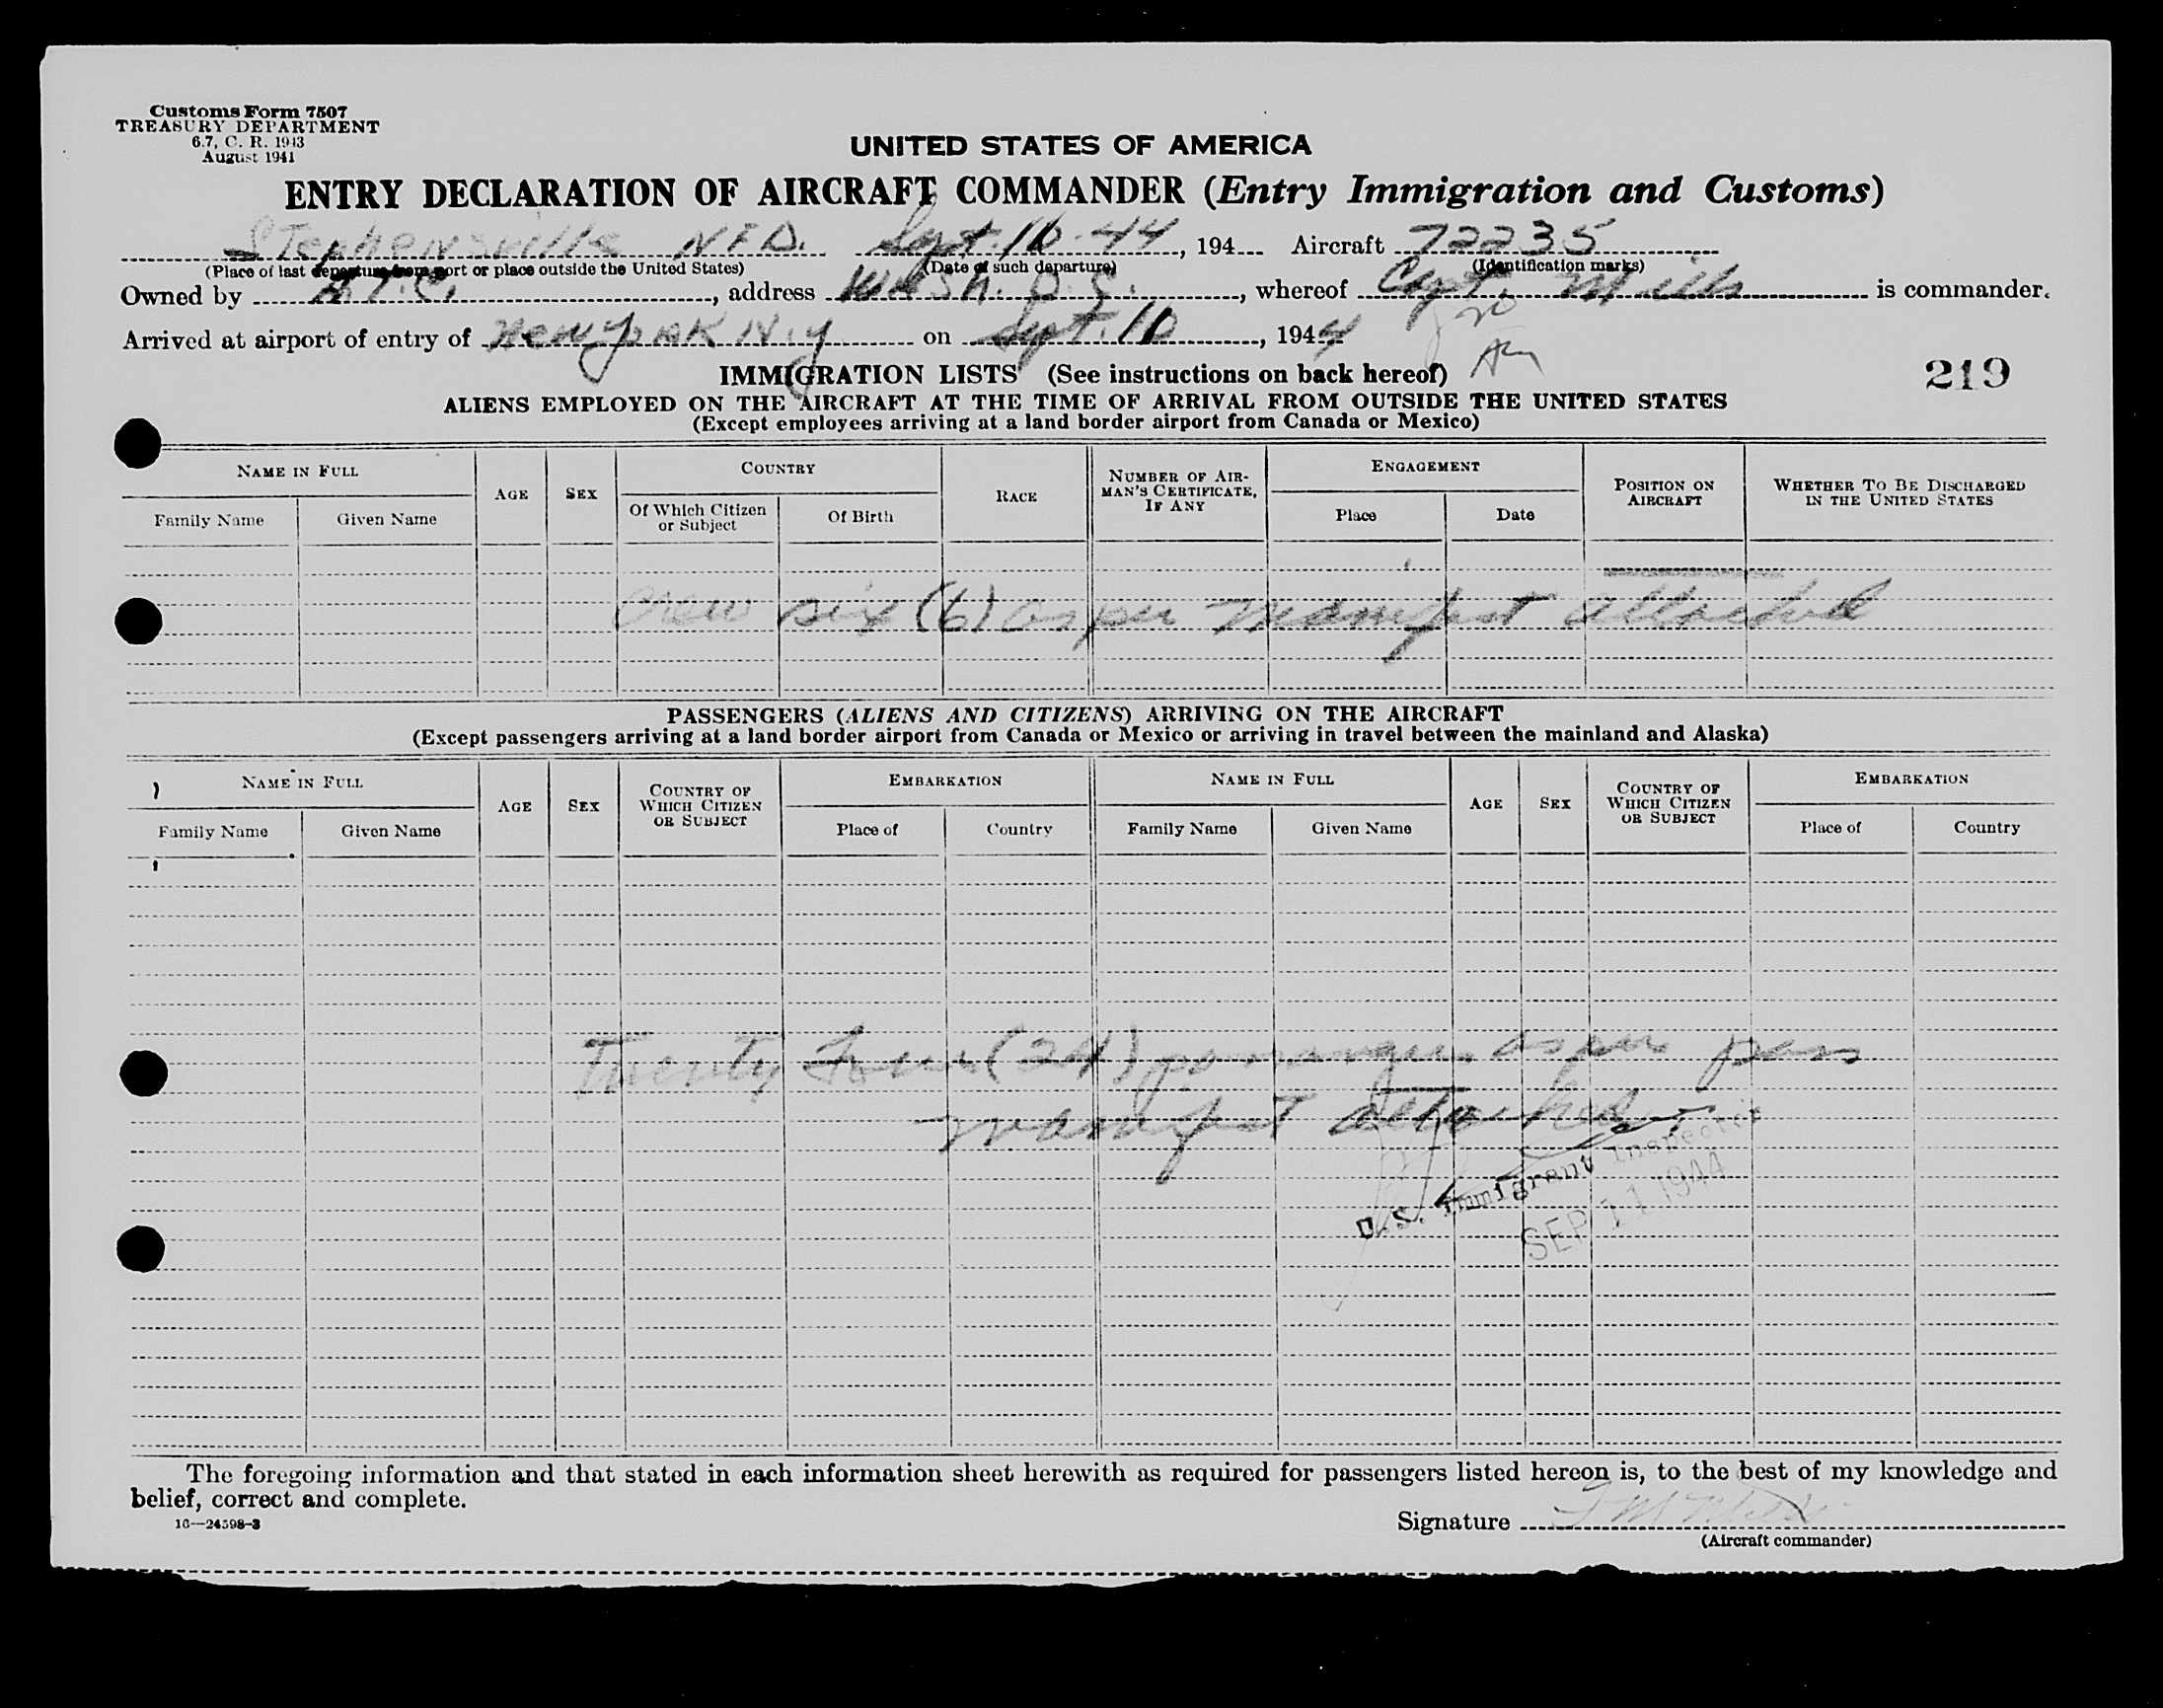 Customs Form 7507
TREASURY DEPARTMENT
6.7, C. R. 1943
August 1941
UNITED STATES OF AMERICA
ENTRY DECLARATION OF AIRCRAFT COMMANDER (Entry Immigration and Customs)
Stephensville NFD. Sept. 10-44, 194 Aircraft 72235
(Place of last departure from port or place outside the United States) (Date of such departure) (Identification marks)
Owned by A.T.C., address Wash. D.C., whereof Capt. Mills is commander.
Arrived at airport of entry of New York N.Y on Sept. 10, 1944
219
IMMIGRATION LISTS (See instructions on back hereof)
ALIENS EMPLOYED ON THE AIRCRAFT AT THE TIME OF ARRIVAL FROM OUTSIDE THE UNITED STATES
(Except employees arriving at a land border airport from Canada or Mexico)
NAME IN FULL AGE SEX COUNTRY RACE NUMBER OF AIRMAN'S CERTIFICATE, IF ANY ENGAGEMENT POSITION ON AIRCRAFT WHETHER TO BE DISCHARGED IN THE UNITED STATES
Family Name Given Name Of Which Citizen or Subject Of Birth Place Date
Crew six (6) as per manifest attached
PASSENGERS (ALIENS AND CITIZENS) ARRIVING ON THE AIRCRAFT
(Except passengers arriving at a land border airport from Canada or Mexico or arriving in travel between the mainland and Alaska)
NAME IN FULL AGE SEX COUNTRY OF WHICH CITIZEN OR SUBJECT EMBARKATION NAME IN FULL AGE SEX COUNTRY OF WHICH CITIZEN OR SUBJECT EMBARKATION
Family Name Given Name Place of Country Family Name Given Name Place of Country
Twenty Four (24) passengers as per pass
manifest attached
U.S. Immigrant Inspector
SEP 11 1944
The foregoing information and that stated in each information sheet herewith as required for passengers listed hereon is, to the best of my knowledge and
belief, correct and complete.
16—24598-3
Signature
(Aircraft commander)